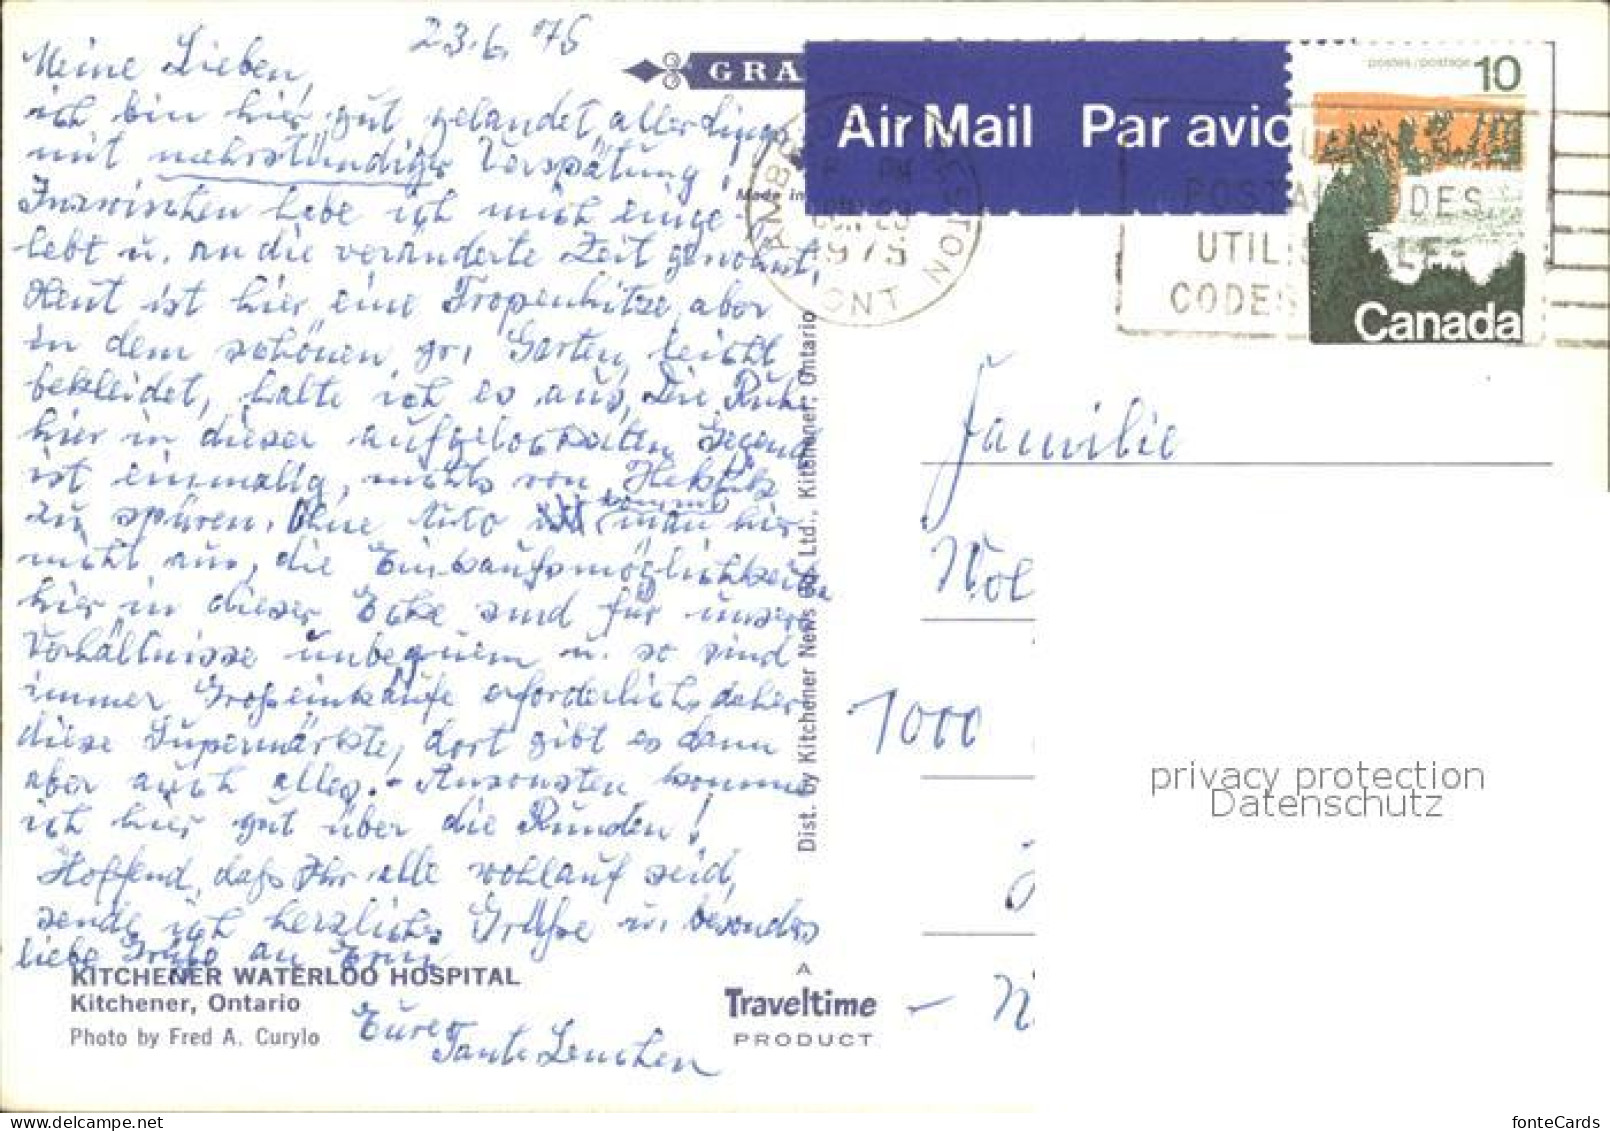 23.6.75
Meine Lieben,
ich bin hier gut gelandet, allerdings
mit mehrstündiger Verspätung!
Inzwischen habe ich mich einge-
lebt u. an die veränderte Zeit gewöhnt,
Heut ist hier eine Tropenhitze, aber
in dem schönen gr. Garten, leicht
bekleidet, halte ich es aus, Die Ruhe
hier in dieser aufgelockerten Gegend
ist einmalig, nichts von Hektik
zu spüren. Ohne Auto kommt man hier
nicht aus, die Einkaufsmöglichkeiten
hier in dieser Ecke sind für unsere
Verhältnisse unbequem u. so sind
immer Großeinkäufe erforderlich, daher
diese Supermärkte, dort gibt es dann
aber auch alles. - Ansonsten komme
ich hier gut über die Runden!
Hoffend, daß Ihr alle wohlauf seid,
sende ich herzliche Grüße u. besonders
liebe Grüße an
Eure
Tante Lenchen
KITCHENER WATERLOO HOSPITAL
Kitchener, Ontario
Photo by Fred A. Curylo
GRA
Made in
Dist. by Kitchener News Co. Ltd., Kitchener, Ontario
A
Traveltime
PRODUCT
Air Mail Par avion
postes/postage 10
Canada
PM
1975
ONT
POSTAL CODES
UTILIS LES
CODES
Familie
Wol
1000
privacy protection
Datenschutz
fonteCards